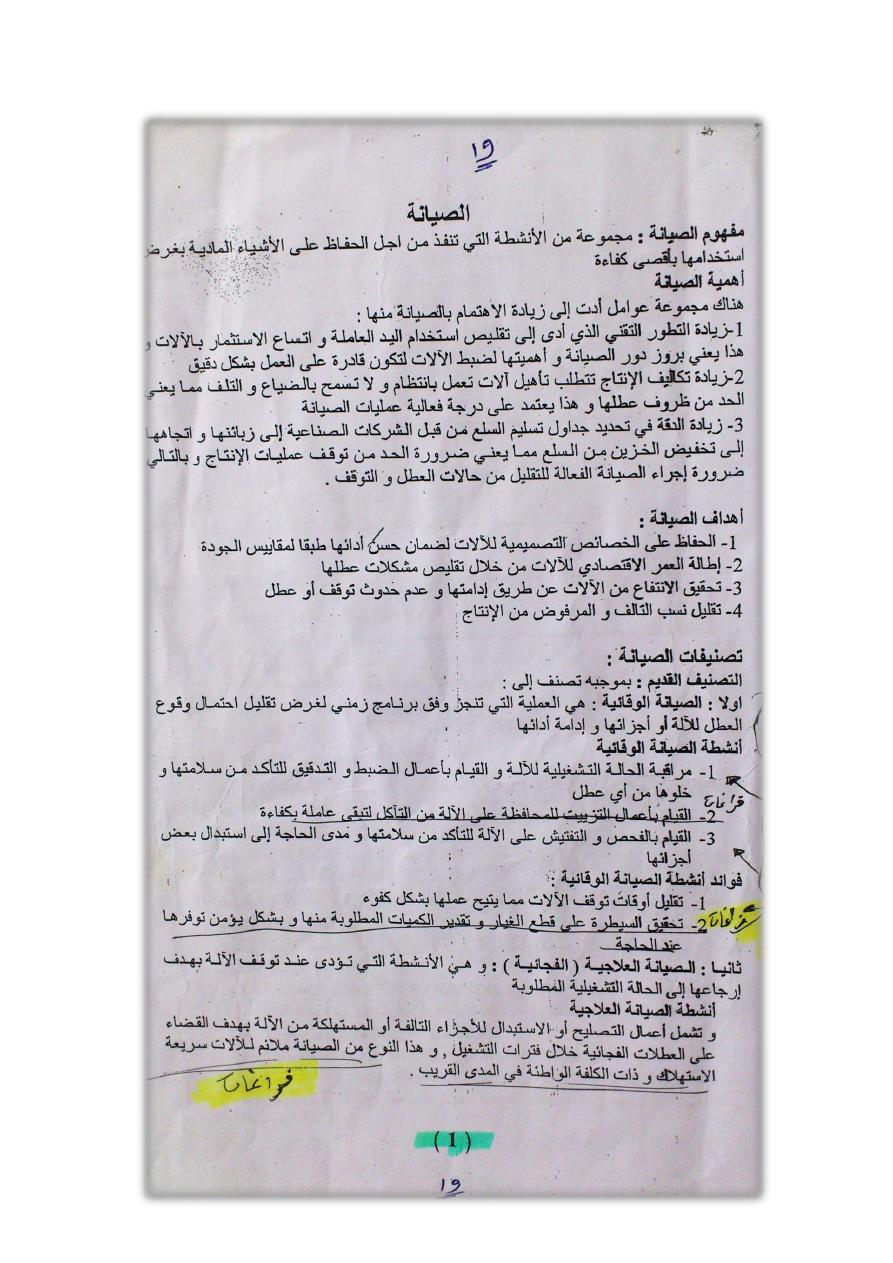 و١
الصيانة
مفهوم الصيانة : مجموعة من الأنشطة التي تنفذ من اجل الحفاظ على الأشياء المادية بغرض
استخدامها بأقصى كفاءة
أهمية الصيانة
هناك مجموعة عوامل أدت إلى زيادة الاهتمام بالصيانة منها :
1-زيادة التطور التقني الذي أدى إلى تقليص استخدام اليد العاملة و اتساع الاستثمار بالآلات و
هذا يعني بروز دور الصيانة و أهميتها لضبط الآلات لتكون قادرة على العمل بشكل دقيق
2-زيادة تكاليف الإنتاج تتطلب تأهيل آلات تعمل بانتظام و لا تسمح بالضياع و التلف مما يعني
الحد من ظروف عطلها و هذا يعتمد على درجة فعالية عمليات الصيانة
3- زيادة الدقة في تحديد جداول تسليم السلع من قبل الشركات الصناعية إلى زبائنها و اتجاهها
إلى تخفيض الخزين من السلع مما يعني ضرورة الحد من توقف عمليات الإنتاج و بالتالي
ضرورة إجراء الصيانة الفعالة للتقليل من حالات العطل و التوقف .
أهداف الصيانة :
1- الحفاظ على الخصائص التصميمية للآلات لضمان حسن أدائها طبقا لمقاييس الجودة
2- إطالة العمر الاقتصادي للآلات من خلال تقليص مشكلات عطلها
3- تحقيق الانتفاع من الآلات عن طريق إدامتها و عدم حدوث توقف أو عطل
4- تقليل نسب التالف و المرفوض من الإنتاج
تصنيفات الصيانة :
التصنيف القديم : بموجبه تصنف إلى :
اولا : الصيانة الوقائية : هي العملية التي تنجز وفق برنامج زمني لغرض تقليل احتمال وقوع
العطل للآلة أو أجزائها و إدامة أدائها
أنشطة الصيانة الوقائية
1- مراقبة الحالة التشغيلية للآلة و القيام بأعمال الضبط و التدقيق للتأكد من سلامتها و
خلوها من أي عطل
فراغات
2- القيام بأعمال التزييت للمحافظة على الآلة من التآكل لتبقى عاملة بكفاءة
3- القيام بالفحص و التفتيش على الآلة للتأكد من سلامتها و مدى الحاجة إلى استبدال بعض
أجزائها
فوائد أنشطة الصيانة الوقائية :
1- تقليل أوقات توقف الآلات مما يتيح عملها بشكل كفوء
فراغات 2- تحقيق السيطرة على قطع الغيار و تقدير الكميات المطلوبة منها و بشكل يؤمن توفرها
عند الحاجة
ثانيا : الصيانة العلاجية ( الفجائية ) : و هي الأنشطة التي تؤدى عند توقف الآلة بهدف
إرجاعها إلى الحالة التشغيلية المطلوبة
أنشطة الصيانة العلاجية
و تشمل أعمال التصليح أو الاستبدال للأجزاء التالفة أو المستهلكة من الآلة بهدف القضاء
على العطلات الفجائية خلال فترات التشغيل , و هذا النوع من الصيانة ملائم للآلات سريعة
الاستهلاك و ذات الكلفة الواطئة في المدى القريب .
فراغات
( 1 )
و١